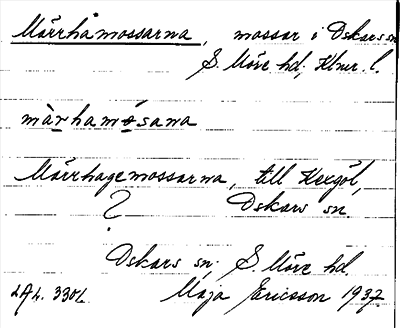 Märrhåmossarna, mossar i Oskars sn
S. Möre hd, Klmr. l.
màrhamósana
Märrhagemossarna, till Hergöl,
? Oskars sn.
Oskars sn, S. Möre hd
LAL. 3301. Maja Ericsson 1937